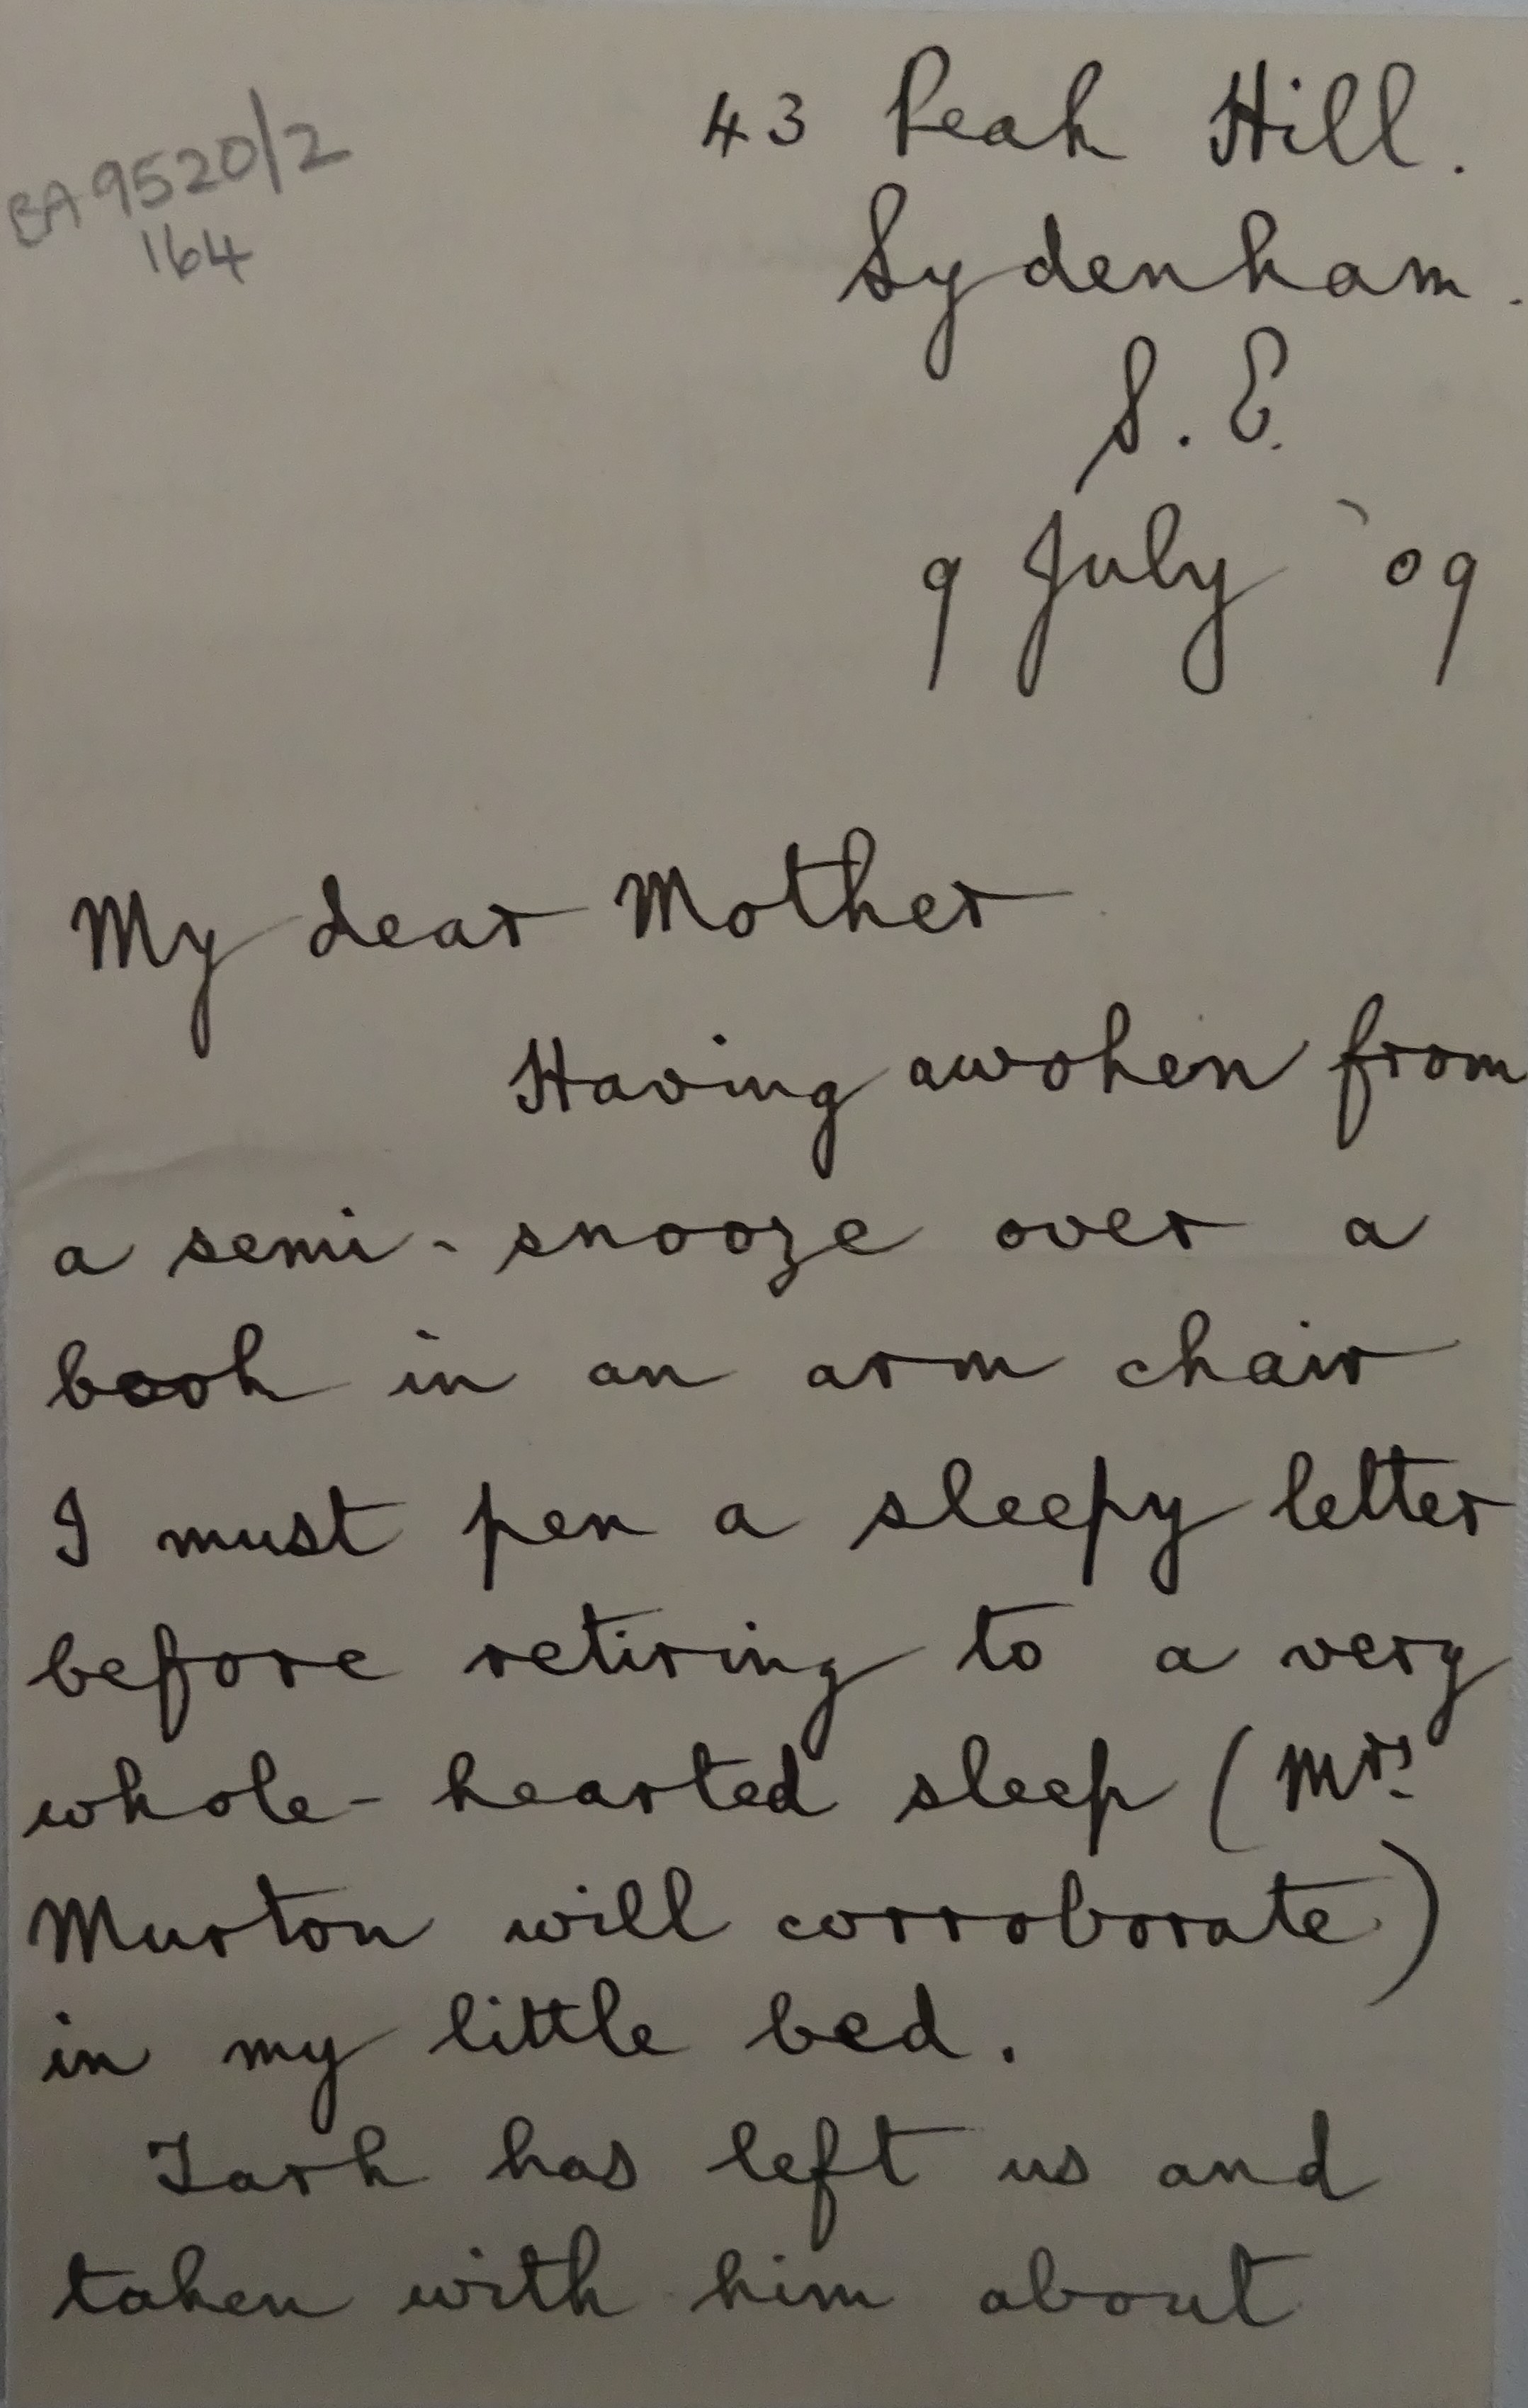 BA 9520/2
164
43 Peak Hill.
Sydenham.
S. E.
9 July '09
My dear Mother
Having awoken from
a semi-snooze over a
book in an arm chair
I must pen a sleepy letter
before retiring to a very
whole-hearted sleep (Mrs.
Murton will corroborate)
in my little bed.
Tark has left us and
taken with him about